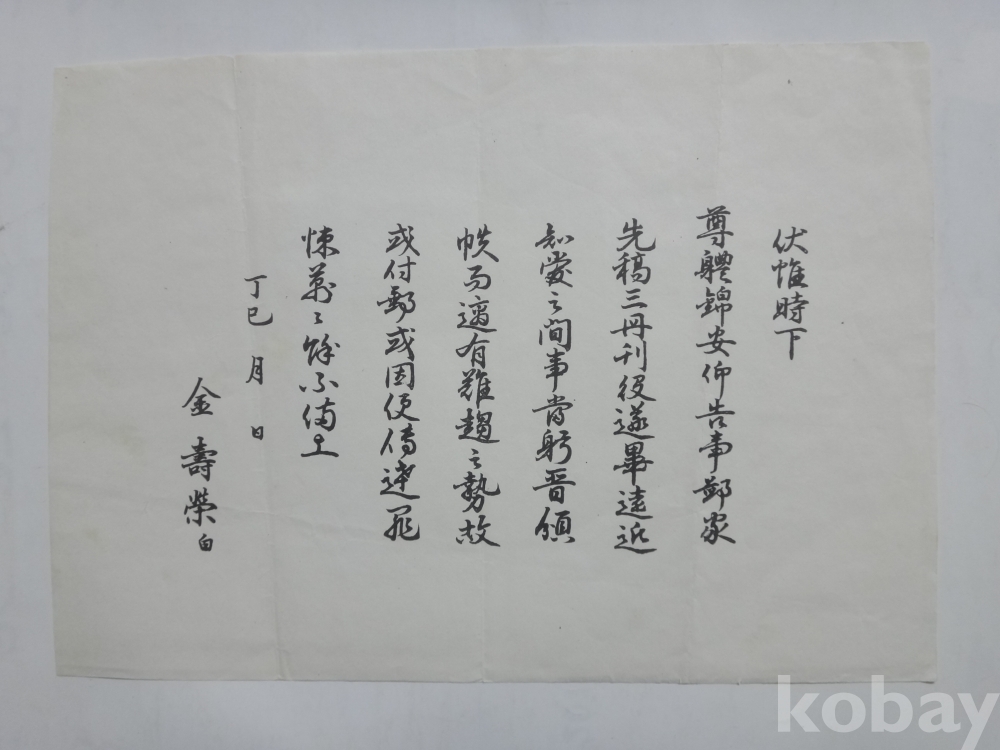 伏惟時下
尊體錦安仰告事鄙家
先稿三冊刊役遂畢遠近
知愛之間事當躬晉頒
帙而適有難趨之勢故
或付郵或因便傳達罪
悚萬〻餘不備上
丁巳 月 日
金壽榮 白
kobay